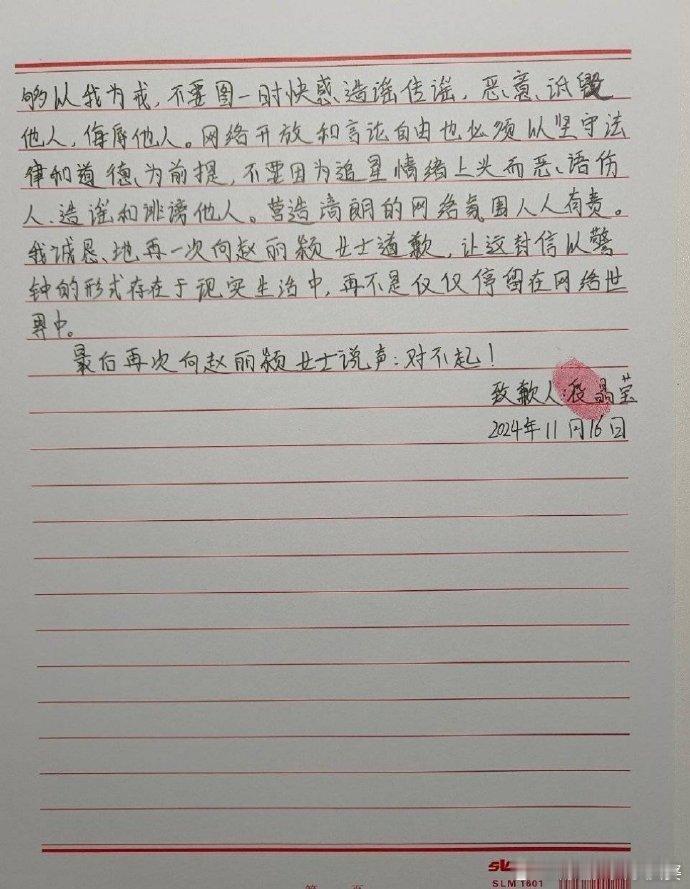 够以我为戒，不要图一时快感造谣传谣，恶意诋毁
他人，侮辱他人。网络开放和言论自由也必须以坚守法
律和道德为前提，不要因为追星情绪上头而恶语伤
人、造谣和诽谤他人。营造清朗的网络氛围人人有责。
我诚恳地再一次向赵丽颖女士道歉，让这封信以警
钟的形式存在于现实生活中，再不是仅仅停留在网络世
界中。
最后再次向赵丽颖女士说声：对不起！
致歉人：晶莹
2024年11月16日
SLM 1601